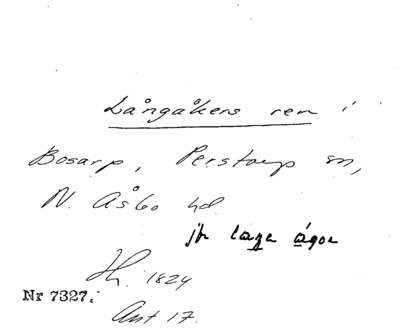 Långåkers ren i
Bosarp, Perstorp sn,
N. Åsbo hd.
jfr laga ágor
Jh. 1824
Nr 7327.
Akt 17.